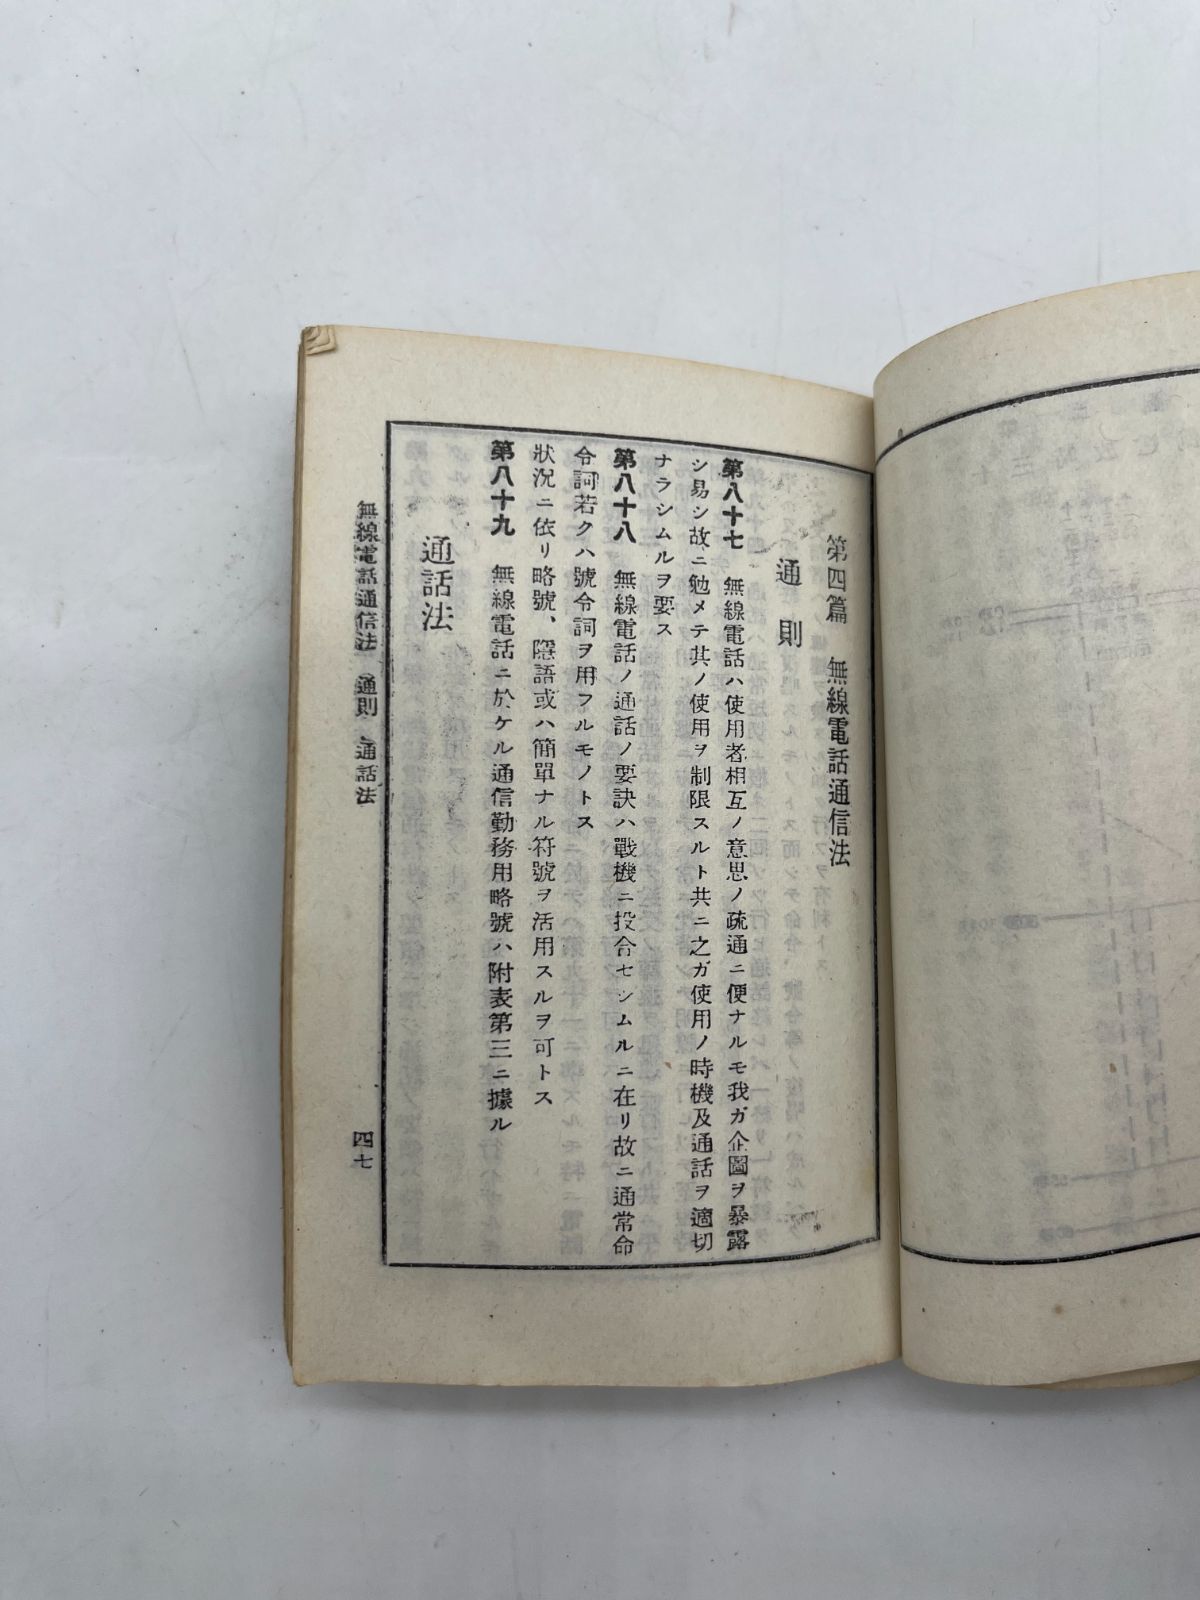 第四篇　無線電話通信法
通則
第八十七　無線電話ハ使用者相互ノ意思ノ疏通ニ便ナルモ我ガ企圖ヲ暴露
シ易シ故ニ勉メテ其ノ使用ヲ制限スルト共ニ之ガ使用ノ時機及通話ヲ適切
ナラシムルヲ要ス
第八十八　無線電話ノ通話ノ要訣ハ戰機ニ投合セシムルニ在リ故ニ通常命
令詞若クハ號令詞ヲ用フルモノトス
狀況ニ依リ略號、隱語或ハ簡單ナル符號ヲ活用スルヲ可トス
第八十九　無線電話ニ於ケル通信勤務用略號ハ附表第三ニ據ル
通話法
無線電話通信法　通則　通話法
四七